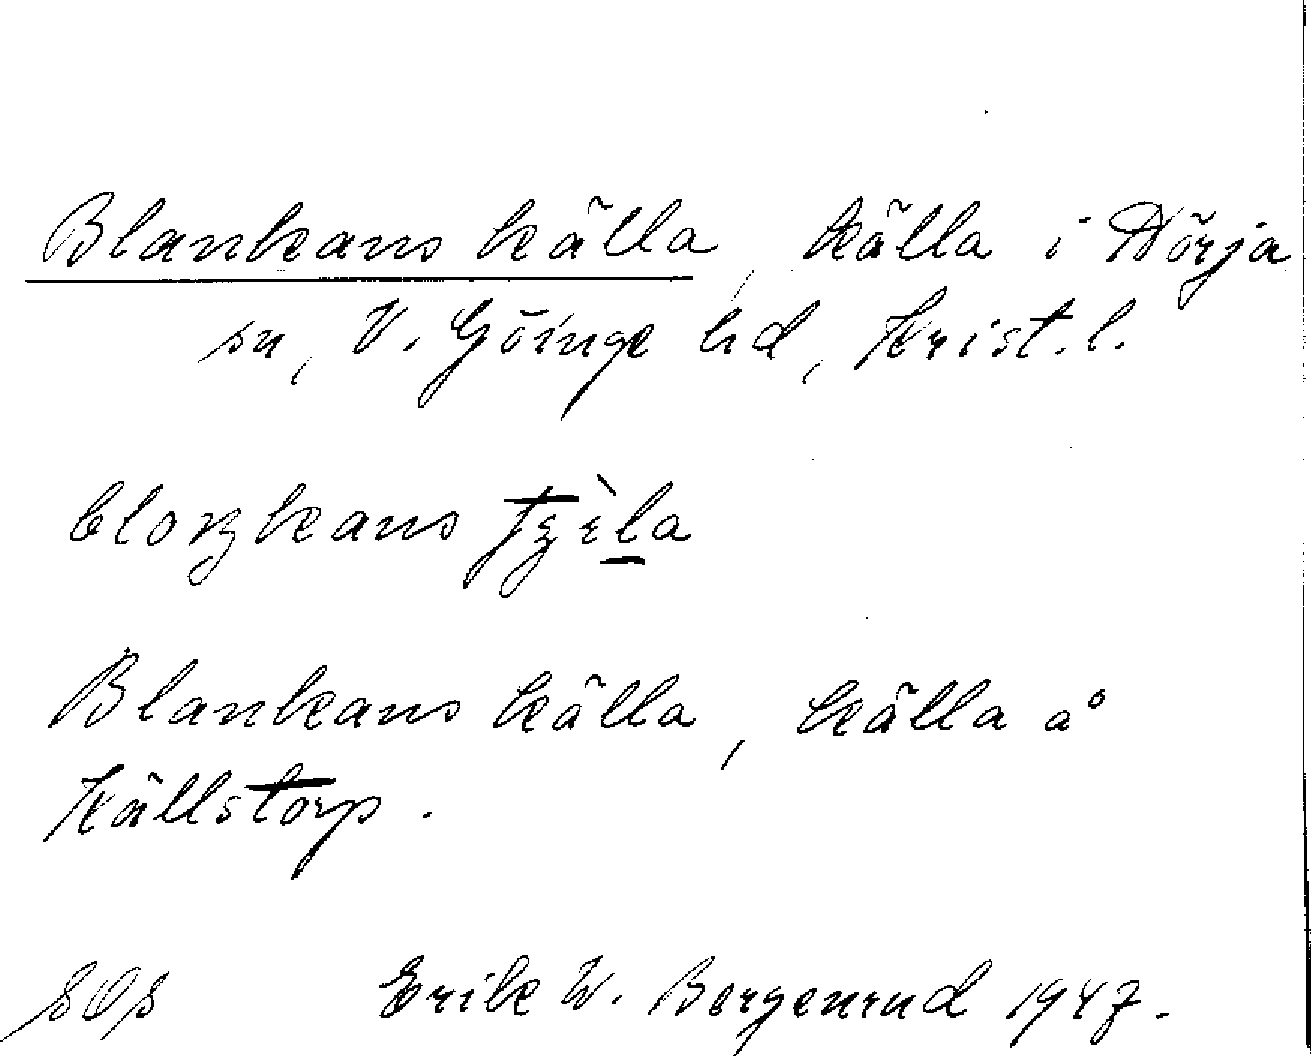 Blankans källa, källa i Hörja
sn, V. Göinge hd, Krist. l.
bloŋkans tʃèl̲a
Blankans källa, källa å
Källstorp.
Erik W. Borgenrud 1947.